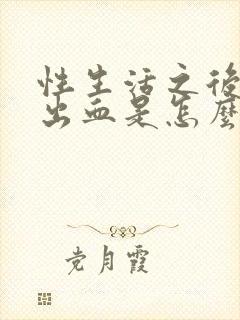 性生活之後
出血是怎麼
党月霞